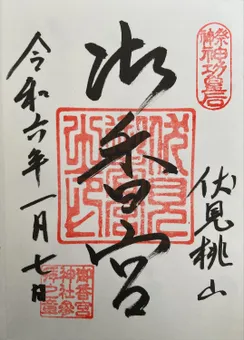 御祭神神功皇后
伏見桃山
御香宮
令和六年一月七日
御香宮
神社参
拝之章